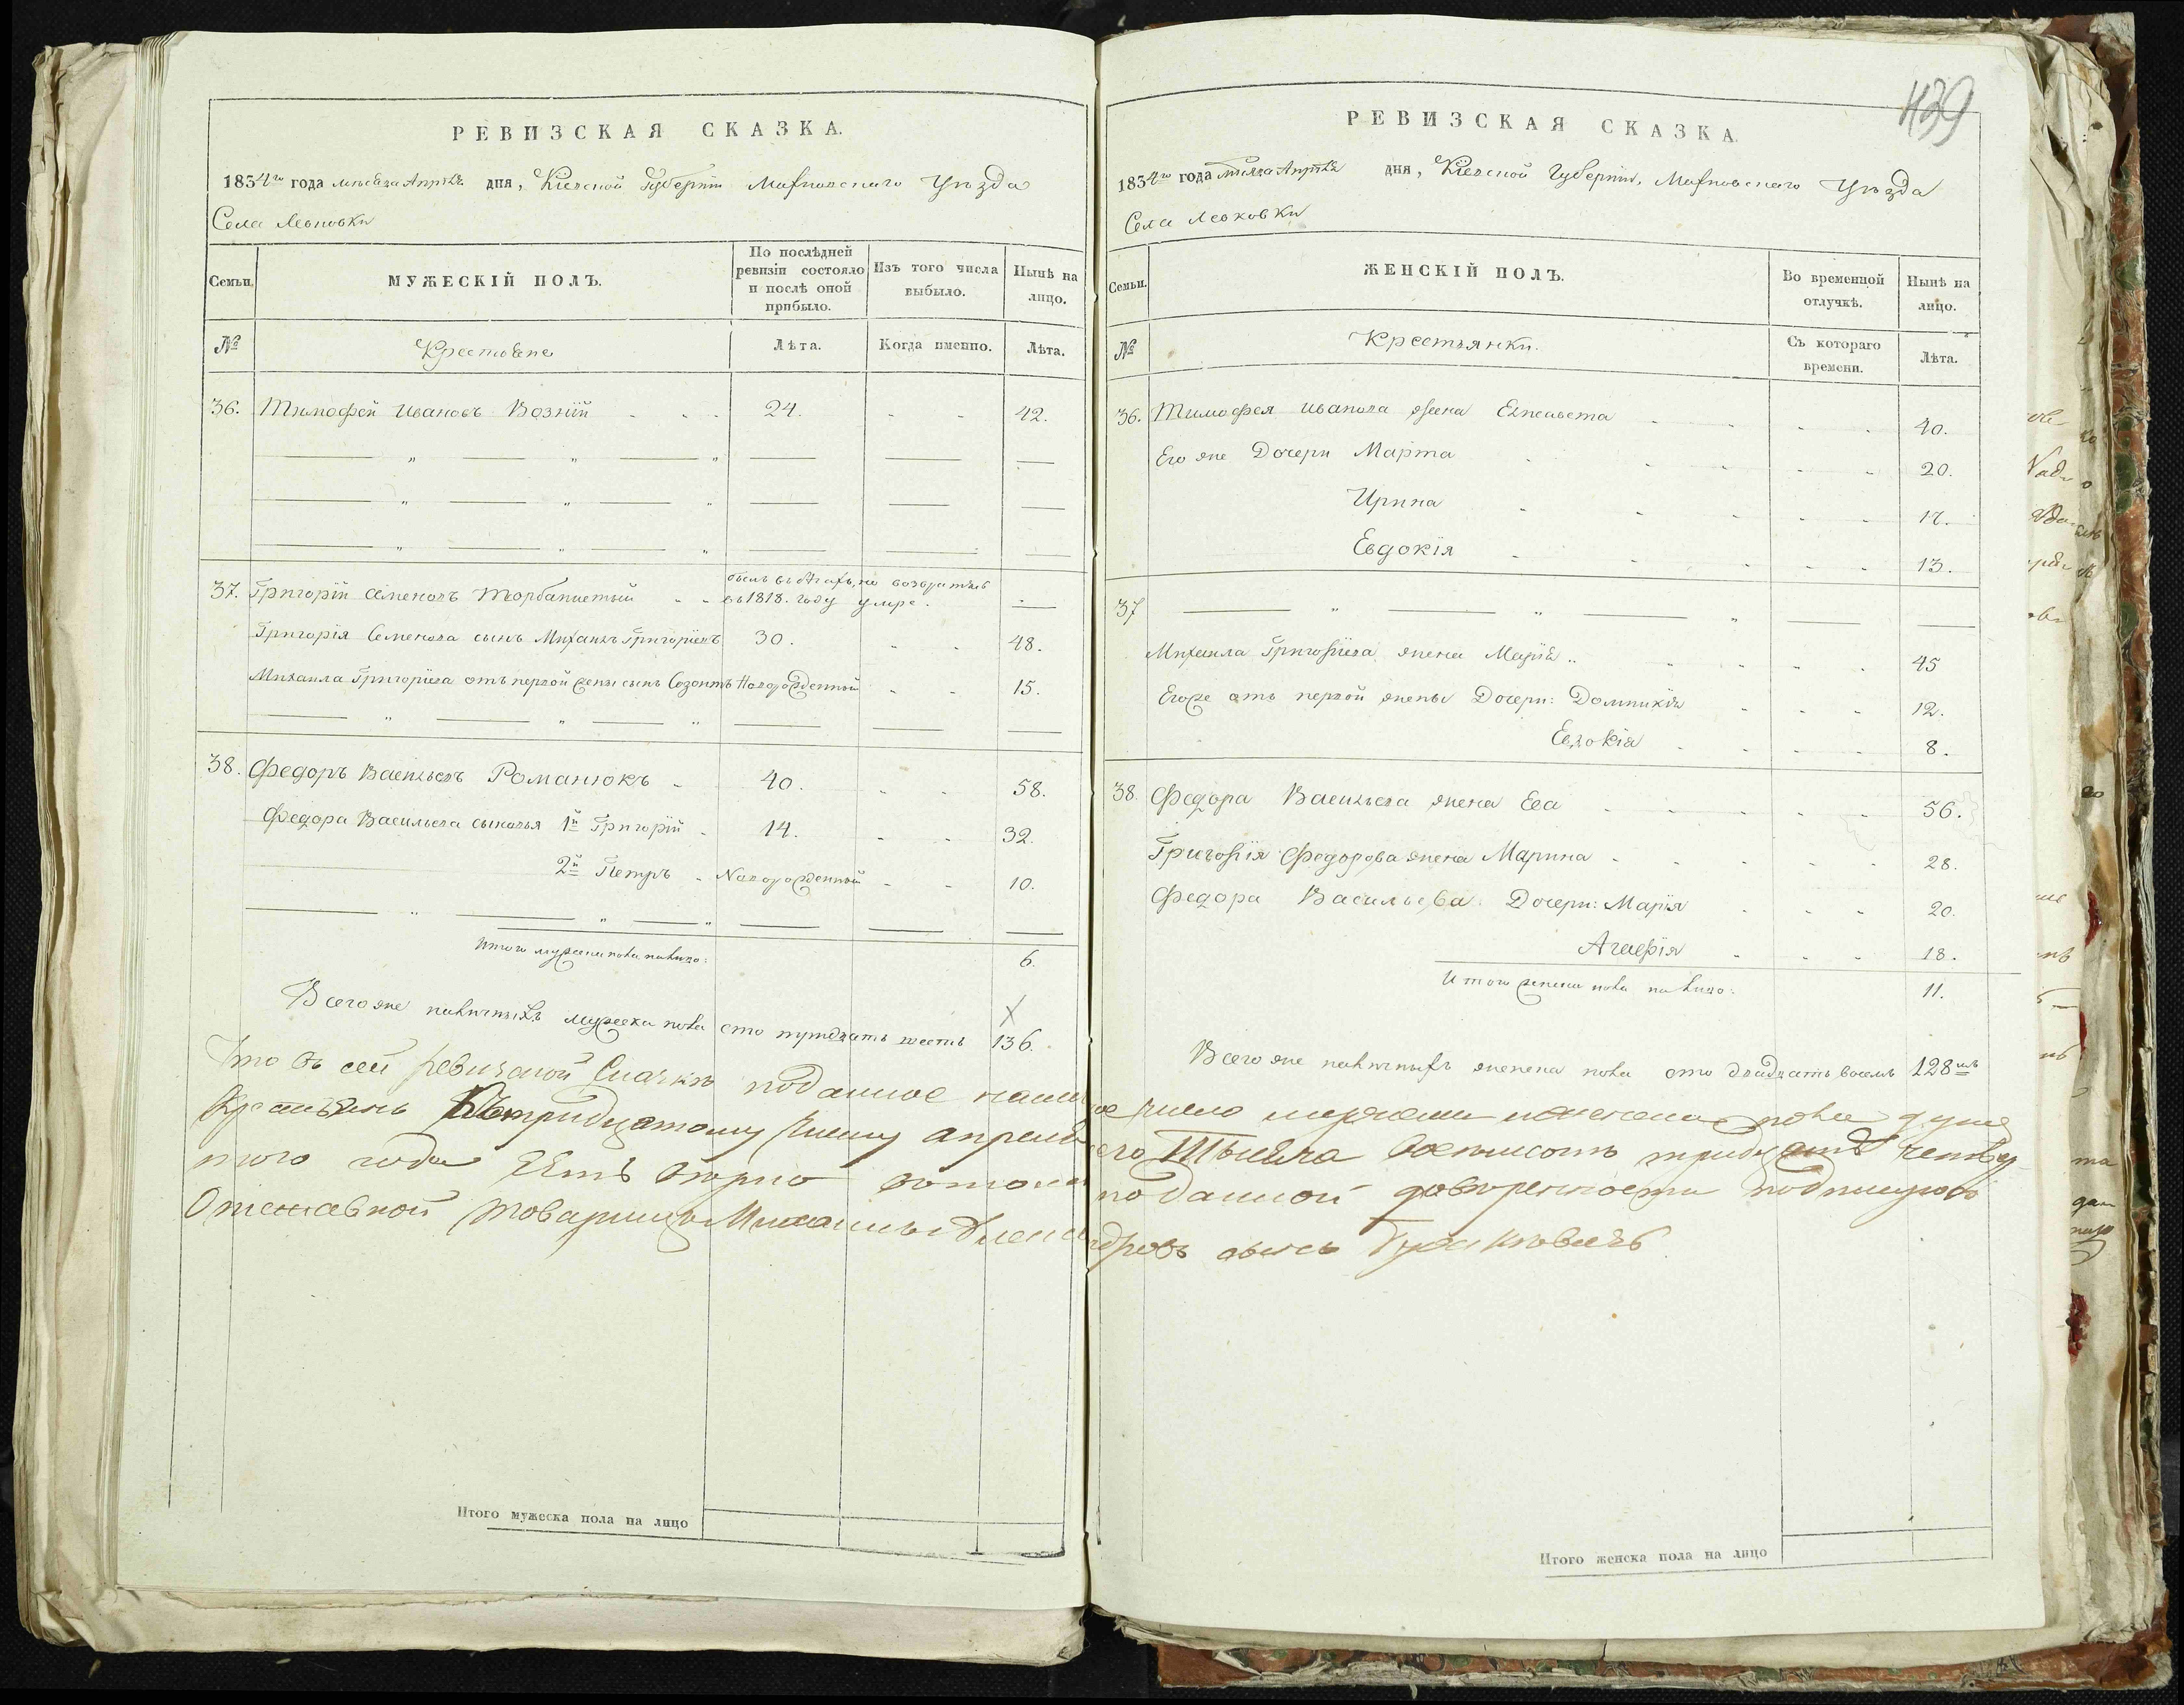 439
РЕВИЗСКАЯ СКАЗКА.
1834го года месяца Апреля дня, Киевской Губернии Махновского Уѣзда
Села Левковки
Семьи. МУЖЕСКІЙ ПОЛЪ. По послѣдней ревизіи состояло и послѣ оной прибыло. Изъ того числа выбыло. Нынѣ на лицо.
№ Крестьяне Лѣта. Когда именно. Лѣта.
36. Тимофей Ивановъ Возній 24. 42.
37. Григорій Семеновъ Торбанистый былъ въ бѣгахъ, но возвратясь въ 1818. году умре.
Григорія Семенова сынъ Михаилъ Григоріевъ 30. 48.
Михаила Григоріева отъ первой жены сынъ Созонтъ Новорожденный 15.
38. Федоръ Васильевъ Романюкъ 40. 58.
Федора Васильева сыновья 1й Григорій 14. 32.
2й Петръ Новорожденный 10.
Итого мужеска пола налицо: 6.
Всего же наличныхъ мужеска пола сто тридцать шесть 136.
РЕВИЗСКАЯ СКАЗКА.
1834го года месяца Апреля дня, Киевской Губерніи, Махновского Уѣзда
Села Левковки
Семьи. ЖЕНСКІЙ ПОЛЪ. Во временной отлучкѣ. Нынѣ на лицо.
№ Крестьянки. Съ котораго времени. Лѣта.
36. Тимофея Иванова жена Елисавета 40.
Его же Дочери Марта 20.
Ирина 17.
Евдокія 13.
37
Михаила Григоріева жена Марія 45
Его же отъ первой жены Дочери: Домникія 12.
Евдокія 8.
38. Федора Васильева жена Ева 56.
Григорія Федорова жена Марина 28.
Федора Васильева Дочери: Марія 20.
Агафія 18.
Итого женска пола налицо: 11.
Всего же наличныхъ женска пола сто двадцать восемь 128мь
Что въ сей ревизской Сказкѣ поданное число мужеска и женска пола душъ
Крестьянъ тридцатому числу апреля Тысяча восемьсотъ тридцать четвер
того года есть вѣрно в томъ по данной доверенности подписуюсь
товарищъ Михаилъ Александровъ сынъ
Итого мужеска пола на лицо
Итого женска пола на лицо